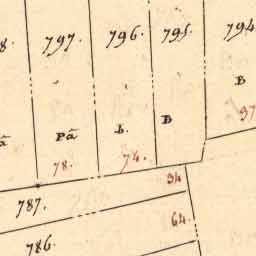 8. 797. 796. 795. 794
B
Pã L. B 37
78. 74. 34
787. 64.
786.